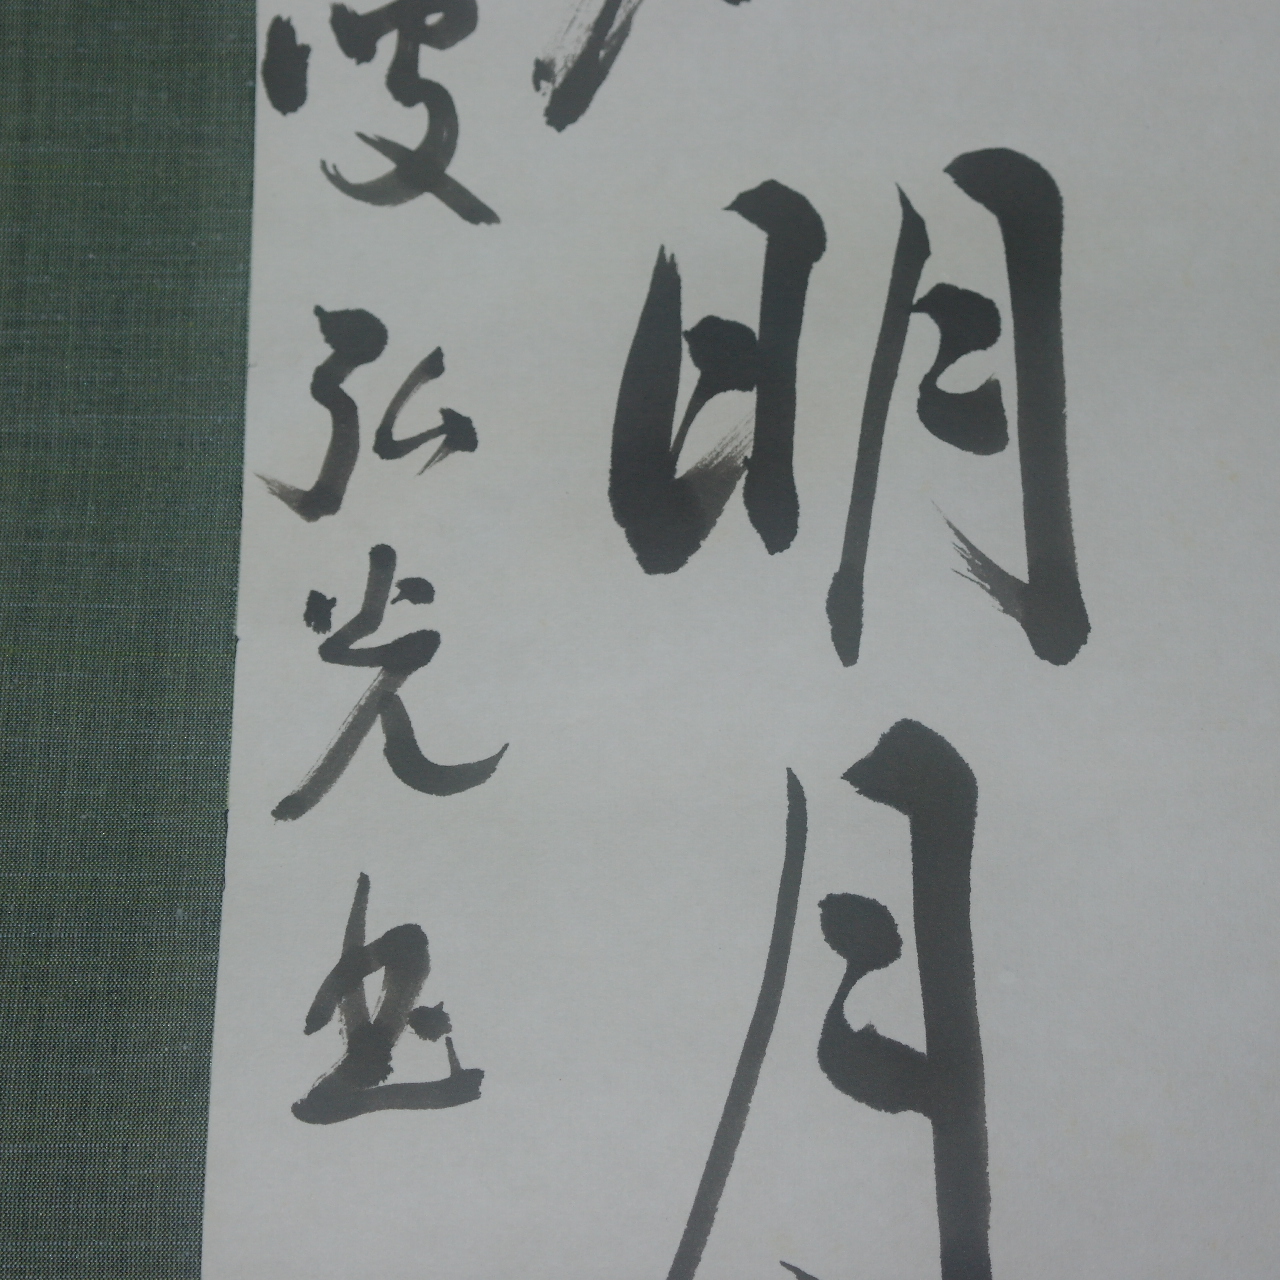 明月
叟弘光書